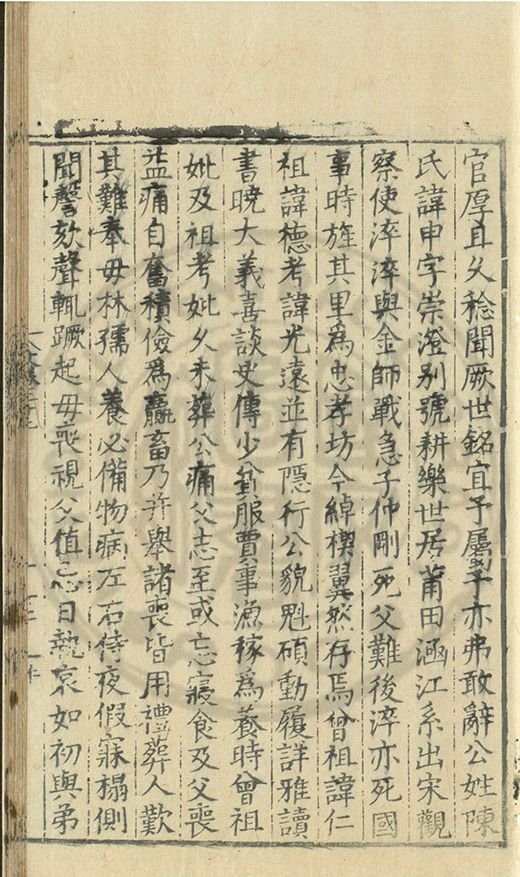 官厚且久稔聞厥世銘宜予屬予亦弗敢辭公姓陳
氏諱申字崇澄别號耕樂世居莆田涵江系出宋觀
察使淬淬與金師戰急子仲剛死父難後淬亦死國
事時旌其里為忠孝坊今綽楔翼然存焉曾祖諱仁
祖諱德考諱光遠並有隱行公貌魁碩動履詳雅讀
書曉大義喜談史傳少貧服賈事漁稼為養時曾祖
妣及祖考妣久未葬公痛父志至或忘寢食及父喪
益痛自奮積儉為贏畜乃并舉諸喪皆用禮葬人歎
其難奉母林孺人養必備物病左右侍夜假寐榻側
聞謦欬聲輒蹶起母喪視父值忌日執哀如初與弟